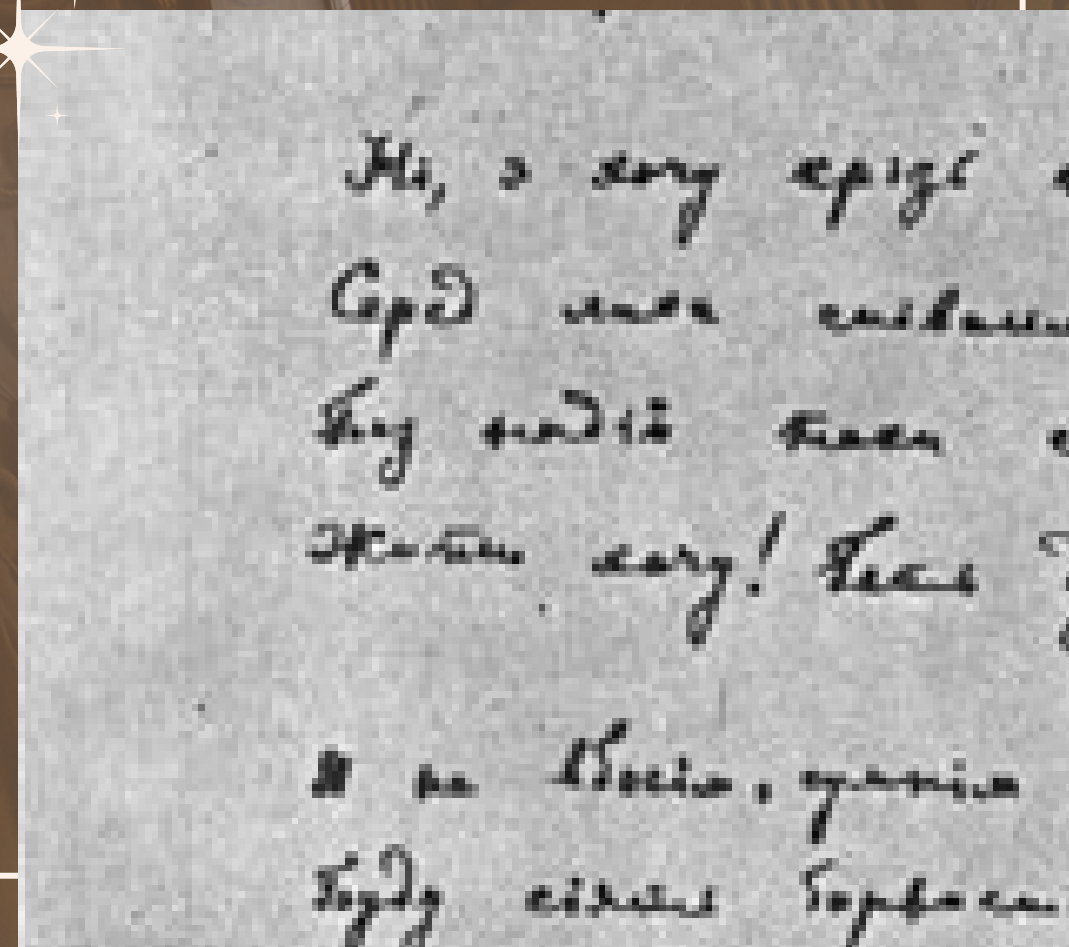 Ні, я хочу крізь
Серед лиха співати
Без надії таки
Жити хочу! Геть
Я на вбогім, сумнім
Буду сіять барвист